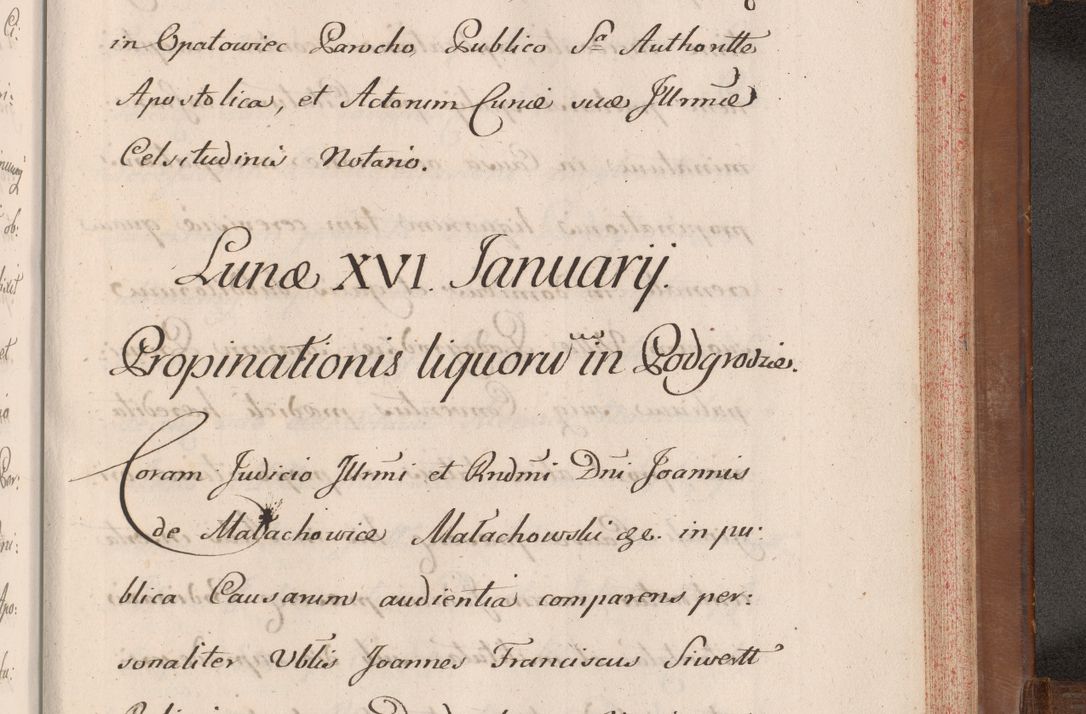 in Opatowiec Parocho, Publico Sa Authortte
Apostolica, et Actorum Curiæ suæ Jllrmæ
Celsitudinis Notario.
Lunæ XVI. Januarij.
Propinationis liquorũ in Podgrodzie.
Coram Judicio Jllrmi et Rndmi Dni Joannis
de Małachowice Małachowski &c. in pu:
blica Causarum audientia comparens per:
sonaliter Vblis Joannes Franciscus Siwertt